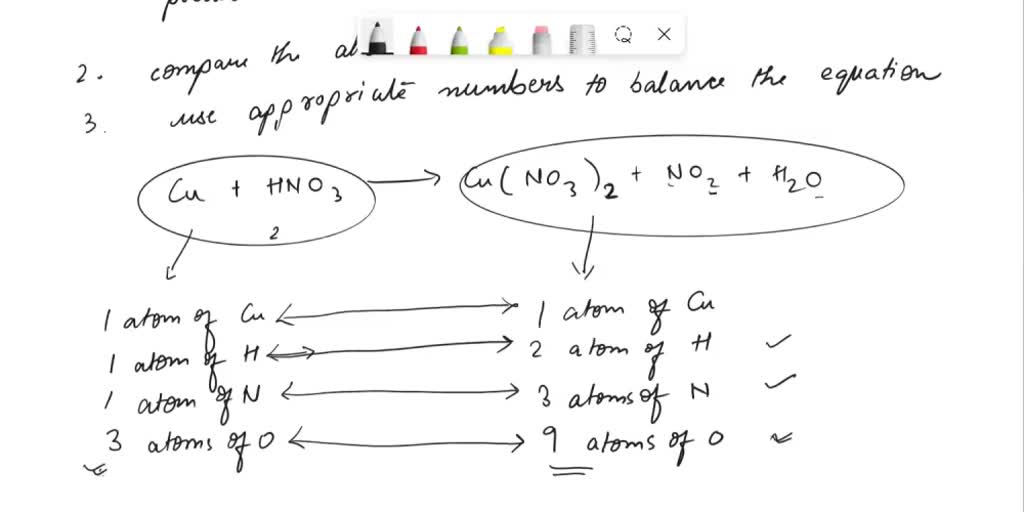 2. compare the
3. use appropriate numbers to balance the equation
Cu + HNO3 → Cu(NO3)2 + NO2 + H2O
2
1 atom of Cu ↔ 1 atom of Cu
1 atom of H ↔ 2 atom of H ✓
1 atom of N ↔ 3 atoms of N ✓
3 atoms of O ↔ 9 atoms of O ✓